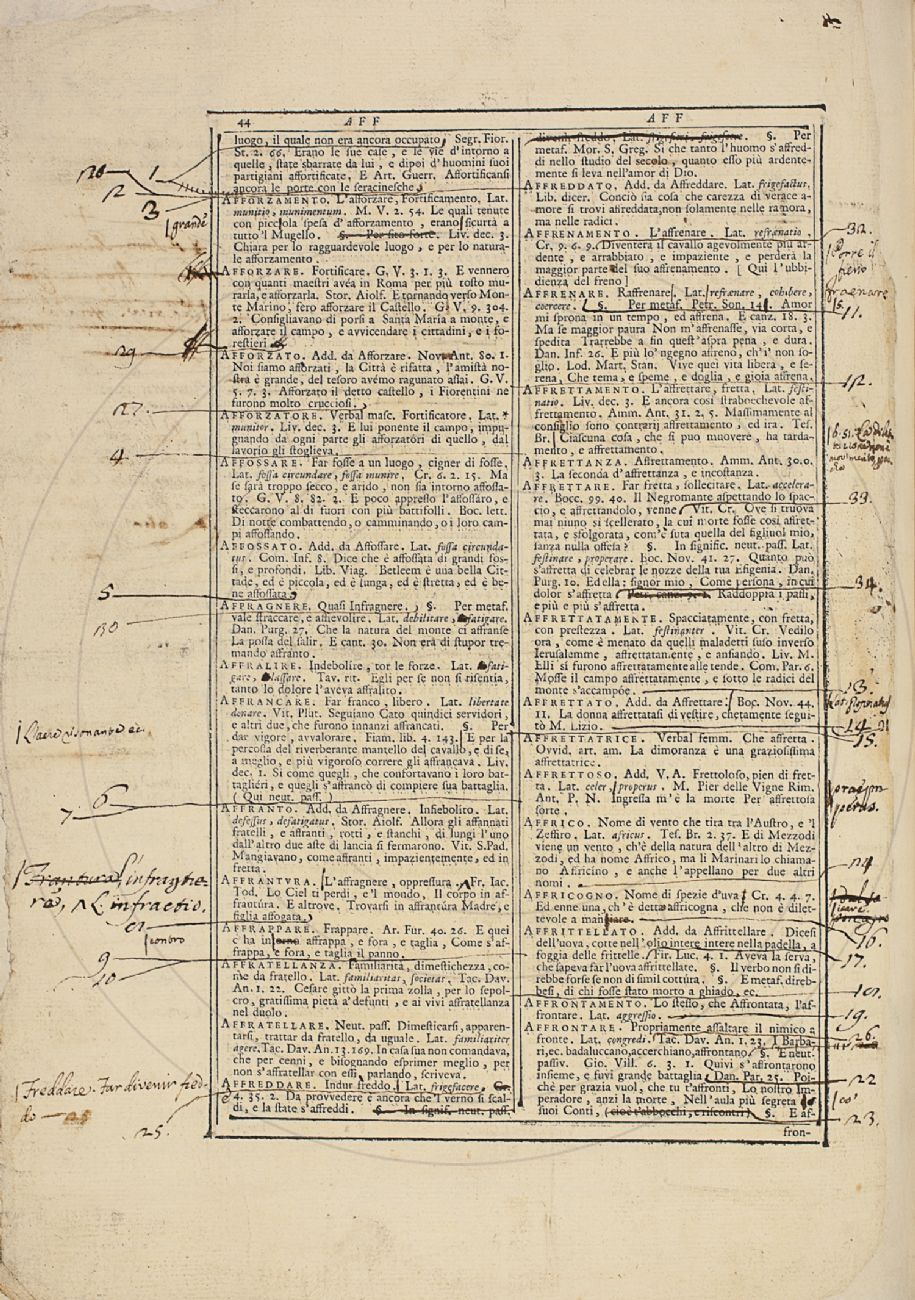 44 AFF AFF
luogo, il quale non era ancora occupato, Segr. Fior.
St. 2. 66. Erano le sue case, e le vie d'intorno a
quelle, state sbarrate da lui, e dipoi d'huomini suoi
partigiani affortificate, E Art. Guerr, Affortificansi
ancora le porte con le seracinesche,
AFFORZAMENTO. L'afforzare, Fortificamento. Lat.
munitio, munimentum. M. V. 2. 54. Le quali tenute
con piccola spesa d'afforzamento, erano sicurtà a
tutto 'l Mugello. §. Per sito forte. Liv. dec. 3.
Chiara per lo ragguardevole luogo, e per lo natura-
le afforzamento.
AFFORZARE. Fortificare. G. V. 3. 1. 3. E vennero
con quanti maestri avéa in Roma per più tosto mu-
rarla, e afforzarla. Stor. Aiolf. E tornando verso Mon-
te Marino, fero afforzare il Castello. G. V. 9. 304.
2. Consigliavano di porsi a Santa Maria a monte, e
afforzare il campo, e avvicendare i cittadini, e i fo-
restieri
AFFORZATO. Add. da Afforzare. Nov. Ant. 80. 1.
Noi siamo afforzati, la Città è rifatta, l'amistà no-
stra è grande, del tesoro avémo ragunato assai. G. V.
5. 7. 3. Afforzato il detto castello, i Fiorentini ne
furono molto crucciosi.
AFFORZATORE. Verbal masc. Fortificatore. Lat.
munitor. Liv. dec. 3. E lui ponente il campo, impu-
gnando da ogni parte gli afforzatóri di quello, dal
lavorio gli stoglieva.
AFFOSSARE. Far fosse a un luogo, cigner di fosse,
Lat. fossa circundare, fossa munire. Cr. 6. 2. 15. Ma
se sarà troppo secco, e arido, non sia intorno affossa-
to. G. V. 8. 82. 2. E poco appresso l'affossáro, e
steccarono al di fuori con più battifolli. Boc. lett.
Di notte combattendo, o camminando, o i loro cam-
pi affossando.
AFFOSSATO. Add. da Affossare. Lat. fossa circunda-
tus. Com. Inf. 8. Dice che è affossata di grandi fos-
si, e profondi. Lib. Viag. Betleem è una bella Cit-
tade, ed è piccola, ed è lunga, ed è stretta, ed è be-
ne affossata
AFFRAGNERE. Quasi Infragnere, §. Per metaf.
vale straccare, e affievolire. Lat. debilitare, fatigare.
Dan. Purg. 27. Che la natura del monte ci affranse
La possa del salir. E cant. 30. Non era di stupor tre-
mando affranto.
AFFRALIRE. Indebolire, tor le forze. Lat. fati-
gare, lassare. Tav. rit. Egli per se non si risentia,
tanto lo dolore l'aveva affralito.
AFFRANCARE. Far franco, libero. Lat. libertate
donare. Vit. Plut. Seguiano Cato quindici servidori,
e altri due, che furono innanzi affrancati. §. Per
dar vigore, avvalorare. Fiam. lib. 4. 143. E per la
percossa del riverberante mantello del cavallo, e di se,
a meglio, e più vigoroso correre gli affrancava. Liv.
dec. 1. Si come quegli, che confortavano i loro bat-
taglièri, e quegli s'affrancò di compiere sua battaglia.
( Qui neut. pass. )
AFFRANTO. Add. da Affragnere. Infiebolito. Lat.
defessus, defatigatus. Stor. Aiolf. Allora gli affannati
fratelli, e affranti, rotti, e stanchi, di lungi l'uno
dall'altro due aste di lancia si fermarono. Vit. S. Pad.
Mangiavano, come affranti, impazientemente, ed in
fretta.
AFFRANTURA. L'affragnere, oppressura. Fr. Iac.
Tod. Lo Ciel ti perdi, e 'l mondo, Il corpo in af-
frantura. E altrove. Trovarsi in affrantura Madre, e
figlia affogata.
AFFRAPPARE. Frappare. Ar. Fur. 40. 26. E quei
c'ha intorno affrappa, e fora, e taglia, Come s'af-
frappa, e fora, e taglia il panno.
AFFRATELLANZA. Familiarità, dimestichezza, co-
me da fratello. Lat. familiaritas, societas. Tac. Dav.
An. 1. 22. Cesare gittò la prima zolla, per lo sepol-
cro, gratissima pietà a' defunti, e ai vivi affratellanza
nel duolo.
AFFRATELLARE. Neut. pass. Dimesticarsi, apparen-
tarsi, trattar da fratello, da uguale. Lat. familiariter
agere. Tac. Dav. An. 13. 169. In casa sua non comandava,
che per cenni, e bisognando esprimer meglio, per
non s'affratellar con essi, parlando, scriveva.
AFFREDDARE. Indur freddo. Lat. frigefacere. Cr.
4. 35. 2. Da provvedere è ancora che 'l verno si scal-
di, e la state s'affreddi. §. In signif. neut. pass.
divenir freddo. Lat. frigefieri, frigescere. §. Per
metaf. Mor. S. Greg. Sì che tanto l'huomo s'affred-
di nello studio del secolo, quanto esso più ardente-
mente si leva nell'amor di Dio.
AFFREDDATO, Add. da Affreddare. Lat. frigefactus,
Lib. dicer. Conciò sia cosa che carezza di verace a-
more si trovi affreddata, non solamente nelle ramora,
ma nelle radici.
AFFRENAMENTO. L'affrenare. Lat. refrænatio.
Cr. 9. 6. 9. Diventerà il cavallo agevolmente più ar-
dente, e arrabbiato, e impaziente, e perderà la
maggior parte del suo affrenamento. [ Qui l'ubbi-
dienza del freno ]
AFFRENARE. Raffrenare. Lat. refrænare, cohibere,
coercere. §. Per metaf. Petr. Son. 141. Amor
mi sprona in un tempo, ed affrena. E canz. 18. 3.
Ma se maggior paura Non m'affrenasse, via corta, e
spedita Trarrebbe a fin quest'aspra pena, e dura.
Dan. Inf. 26. E più lo 'ngegno affreno, ch'i' non so-
glio. Lod. Mart. Stan. Vive quei vita libera, e se-
rena, Che tema, e speme, e doglia, e gioia affrena.
AFFRETTAMENTO. L'affrettare, fretta. Lat. festi-
natio. Liv. dec. 3. E ancora così straboccHevole af-
frettamento. Amm. Ant. 31. 2. 5. Massimamente al
consiglio sono contrarij affrettamento, ed ira. Tes.
Br. Ciascuna cosa, che si può muovere, ha tarda-
mento, e affrettamento.
AFFRETTANZA. Affrettamento. Amm. Ant. 30. 0.
3. La seconda d'affrettanza, e incostanza.
AFFRETTARE. Far fretta, sollecitare. Lat. accelera-
re. Bocc. 99. 40. Il Negromante aspettando lo spac-
cio, e affrettandolo, venne Vit. Cr. Ove si truova
mai niuno sì scellerato, la cui morte fosse così affret-
tata, e sfolgorata, com'è suta quella del figliuol mio,
sanza nulla offesa? §. In signific. neut. pass. Lat.
festinare, properare. Boc. Nov. 41. 27. Quanto può
s'affretta di celebrar le nozze della tua Efigenia. Dan.
Purg. 10. Ed ella: signor mio, Come persona, in cui
dolor s'affretta Raddoppia i passi,
e più e più s'affretta.
AFFRETTATAMENTE. Spacciatamente, con fretta,
con prestezza. Lat. festinanter. Vit. Cr. Vedilo
ora, come è menato da quelli maladetti suso inverso
Ierusalemme, affrettatamente, e ansando. Liv. M.
Elli si furono affrettatamente alle tende. Com. Par. 6.
Mosse il campo affrettatamente, e sotto le radici del
monte s'accampóe.
AFFRETTATO, Add. da Affrettare. Boc. Nov. 44.
11. La donna affrettatasi di vestire, chetamente segui-
tò M. Lizio.
AFFRETTATRICE. Verbal femm. Che affretta.
Ovvid. art. am. La dimoranza è una graziosissima
affrettatrice.
AFFRETTOSO, Add. V. A. Frettoloso, pien di fret-
ta. Lat. celer, properus. M. Pier delle Vigne Rim.
Ant. P. N. Ingressa m'è la morte Per affrettosa
sorte.
AFFRICO. Nome di vento che tira tra l'Austro, e 'l
Zeffiro. Lat. africus. Tes. Br. 2. 37. E di Mezzodì
viene un vento, ch'è della natura dell'altro di Mez-
zodì, ed ha nome Affrico, ma li Marinari lo chiama-
no Affricino, e anche l'appellano per due altri
nomi.
AFFRICOGNO. Nome di spezie d'uva. Cr. 4. 4. 7.
Ed enne una, ch'è detta affricogna, che non è dilet-
tevole a mangiare.
AFFRITTELLATO. Add. da Affrittellare. Dicesi
dell'uova, cotte nell'olio intere intere nella padella, a
foggia delle frittelle. Fir. Luc. 4. 1. Aveva la serva,
che sapeva far l'uova affrittellate. §. Il verbo non si di-
rebbe forse se non di simil cottura. §. E metaf. direb-
besi, di chi fosse stato morto a ghiado, ec.
AFFRONTAMENTO. Lo stesso, che Affrontata, l'af-
frontare. Lat. aggressio.
AFFRONTARE. Propriamente assaltare il nimico a
fronte. Lat. congredi. Tac. Dav. An. 1. 23. I Barba-
ri, ec. badaluccano, accerchiano, affrontano. §. E neut.
passiv. Gio. Vill. 6. 3. 1. Quivi s'affrontarono
insieme, e fuvi grande battaglia. Dan. Par. 25. Poi-
chè per grazia vuol, che tu t'affronti Lo nostro Im-
peradore, anzi la morte, Nell'aula più segreta
suoi Conti, (cioè t'abbocchi, e riscontri) §. E af-
fron-
1
2
3
grande
29
27
4
5
30
6
7
l'infragne-
re, L'infractio.
contro
9
10
Freddare. Far divenir fred-
do
25
32.
Porre il
freno
frænare
11.
12.
33.
34.
13.
14
15.
16.
17.
19.
26.
22
23.